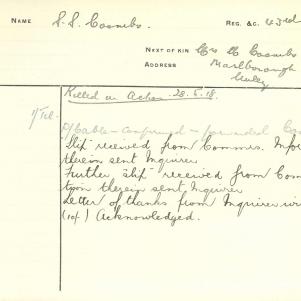 NAME S. S. Coombs REG. &C. 43rd
NEXT OF KIN Mrs H Coombs
ADDRESS Marlborough
Unley
Killed in Action. 28.5.18.
P/Cable confirmed - forwarded
"Slip" received from Commrs. Infor
therein sent Inquirer
Further "slip" received from Com
tion therein sent Inquirer
Letter of thanks from Inquirer
Acknowledged.